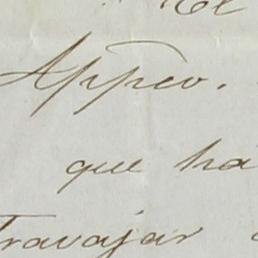 Appeo.
que há
Travajar